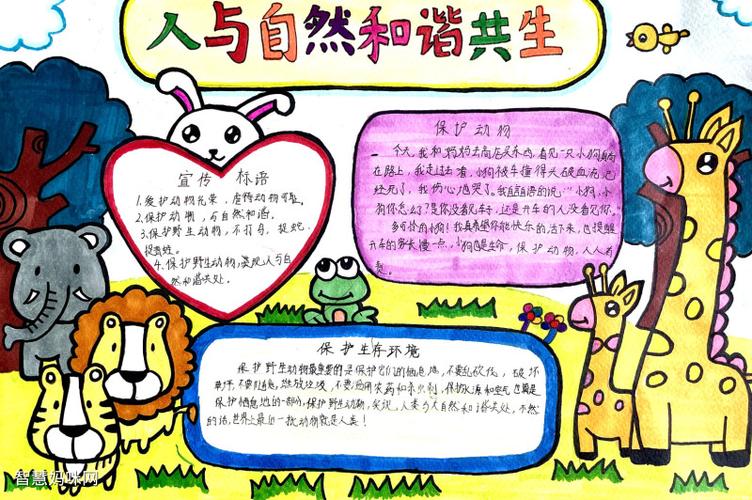 人与自然和谐共生
宣传 标语
1.爱护动物光荣,虐待动物可耻。
2.保护动物,与自然和谐。
3.保护野生动物,不打鸟,捉蛇,
捉青蛙。
4.保护野生动物,实现人与自
然和谐共处。
保护动物
今天,我和妈妈去商店买东西,看见一只小狗真
在路上,我走过去看,小狗被车撞得头破血流,已
经死了,我伤心地哭了。我自言自语的说:“小狗,小
狗你怎么了?是你没看见车子,还是开车的人没看见你。”
多可怜的小狗!我真希望你能快乐的活下来,也提醒
开车的 慢一点,小狗也是生命,保护动物,人人有
责。
保护生存环境
保护野生动物最重要的是保护它们的栖息地,不要乱砍伐,破坏
草坪,不要乱 垃圾,不要 用农药和杀虫剂,保护水源和空气也是
保护栖息地的一部分,保护野生动物,实现人类与大自然和谐共处,不然
的话,世界上最后一批动物就是人类!
智慧妈咪网